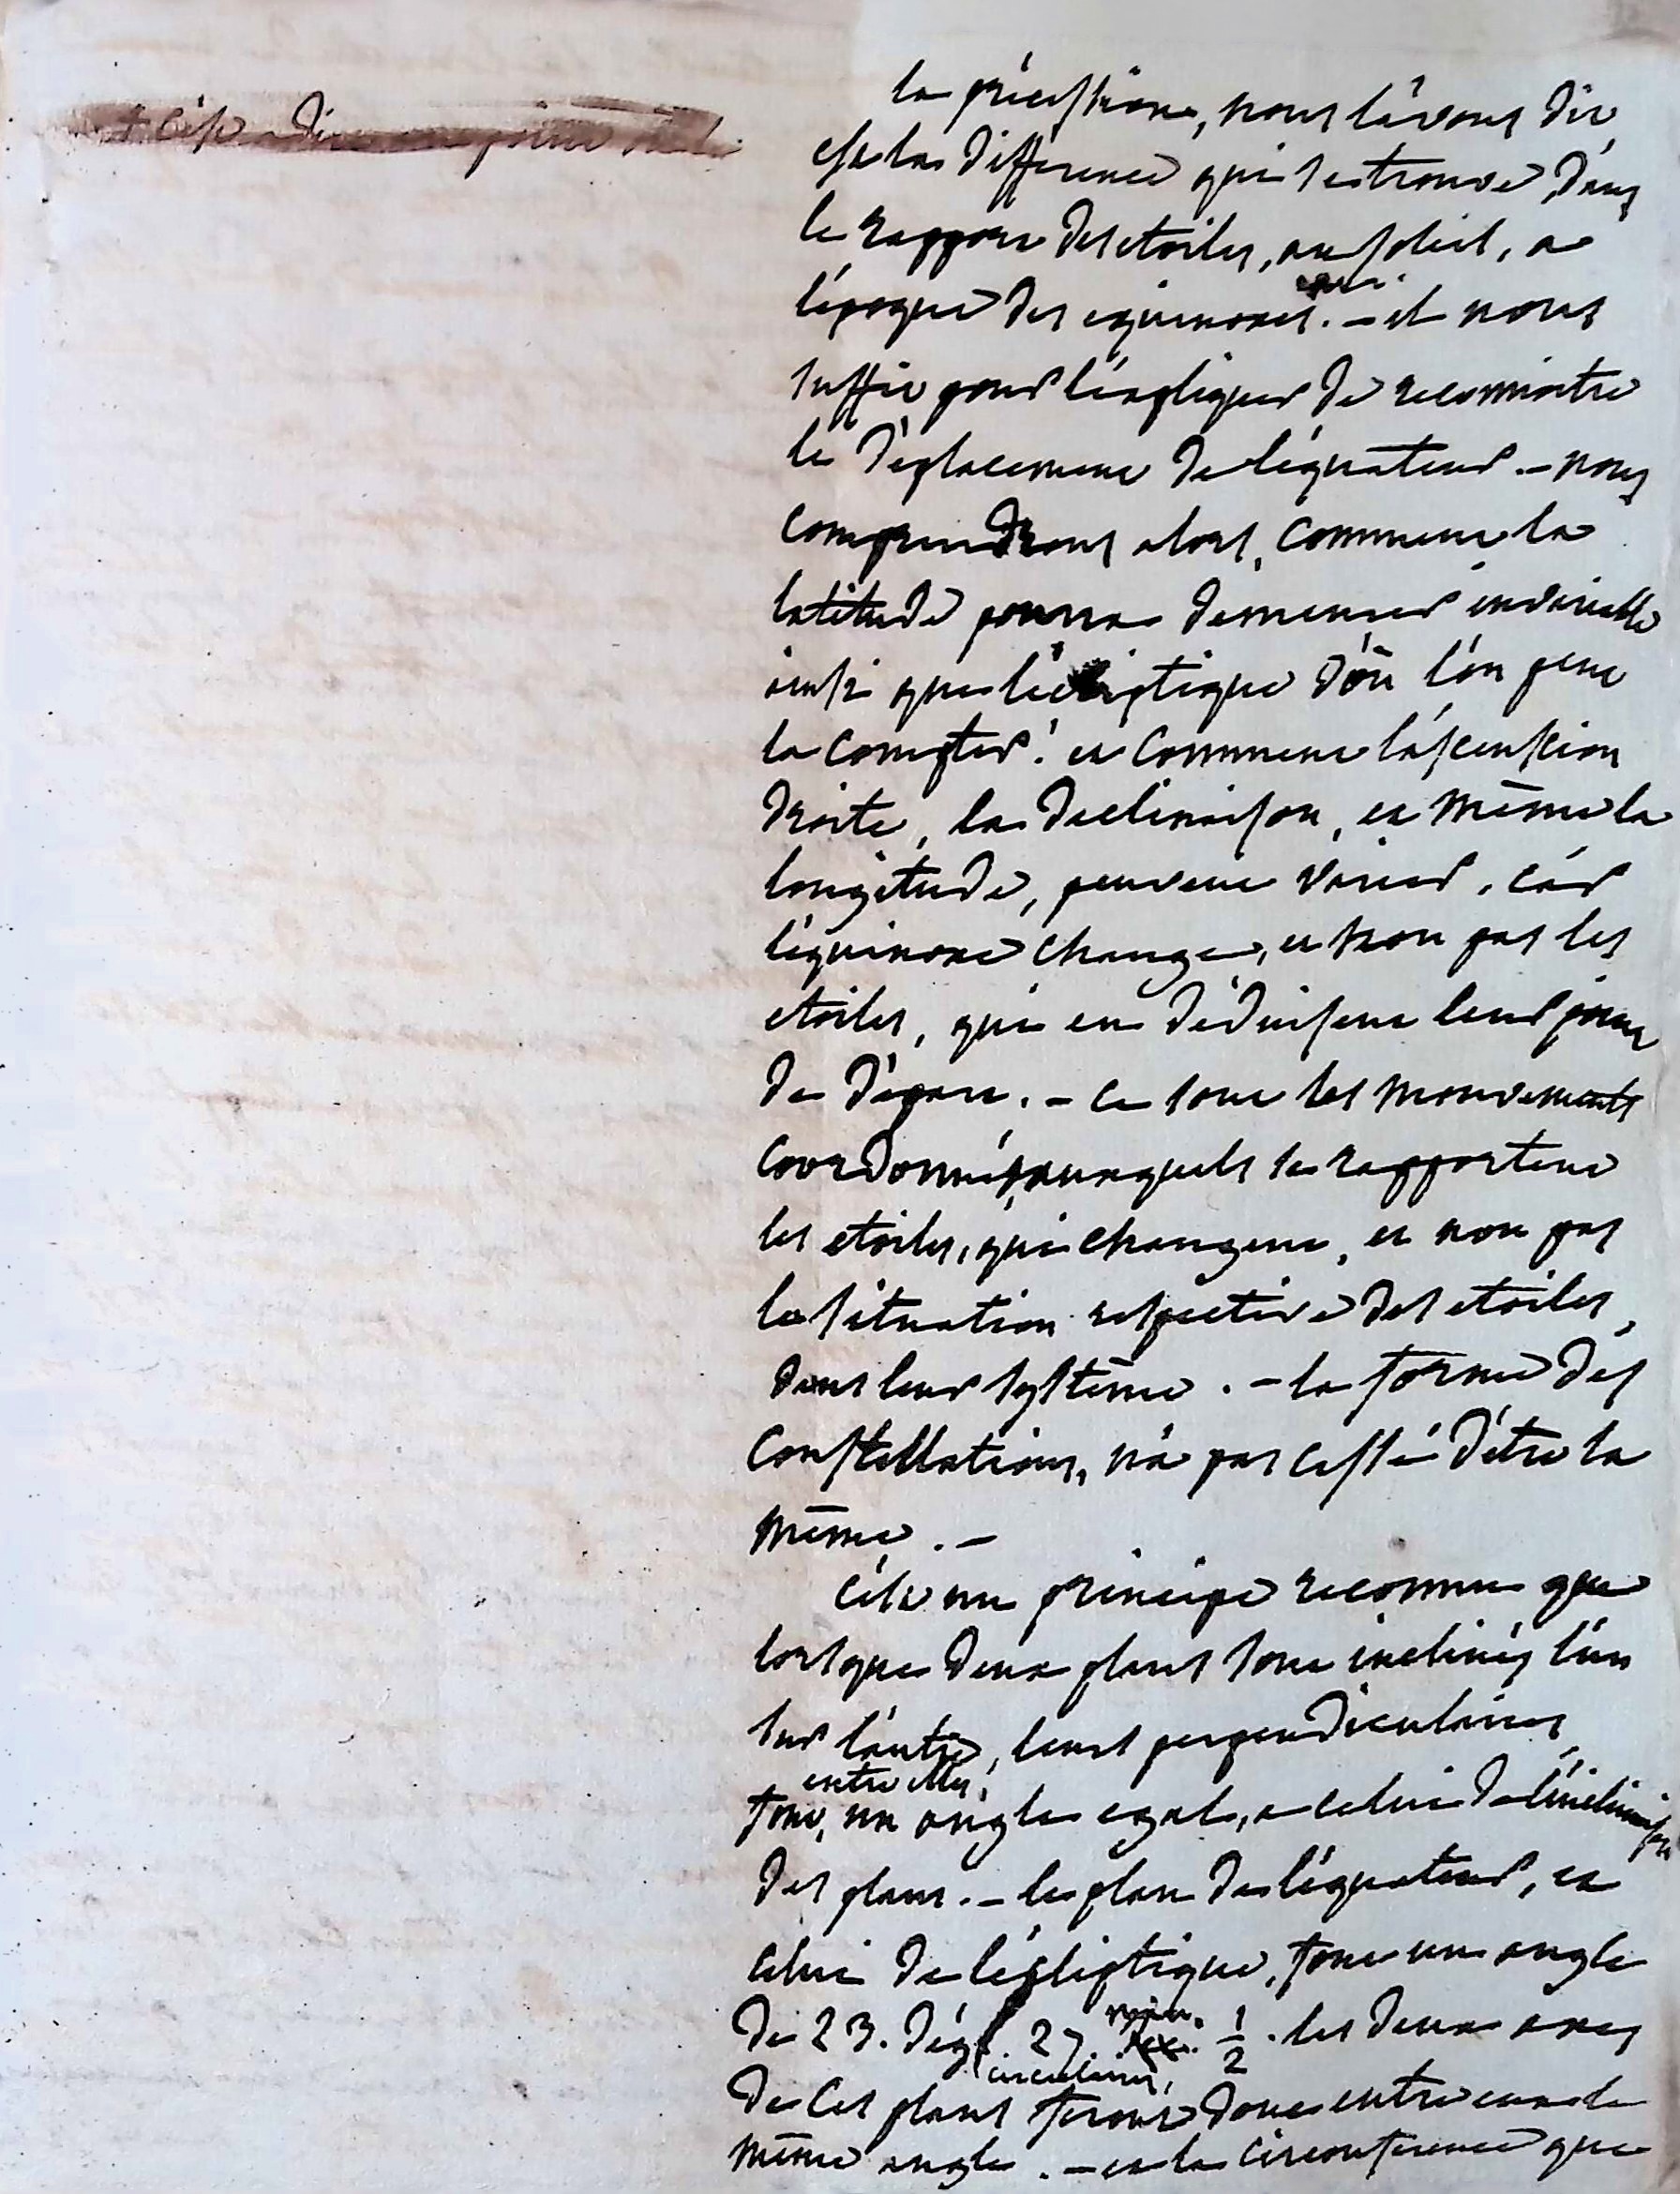 + c'est a dire au point de la
la précession, nous l'avons dit
est la difference qui se trouve dans
le rapport des etoiles, au soleil, a
l'époque des equinoxes. – il nous
suffit pour l'expliquer de reconnoitre
le déplacement de l'équateur. – nous
comprendrons alors, comment la
latitude pourra demeurer invariable
ainsi que l'écliptique d'où l'on peut
la compter. et comment l'ascension
droite, la declinaison, et même la
longitude, peuvent varier. car
l'équinoxe change, et non pas les
etoiles, qui en déduisent leur point
de départ. – ce sont les mouvements
coordonnés, auxquels se rapportent
les etoiles, qui changent, et non pas
la situation respective des etoiles,
dans leur systême. – la forme des
constellations, n'a pas cessé d'être la
même. –
c'est un principe reconnu que
lorsque deux plans sont inclinés l'un
sur l'autre, leurs perpendiculaires
entre elles,
font, un angle egal, a celui de l'inclinaison
des plans. – le plan de l'équateur, et
celui de l'écliptique, font un angle
de 23. dég. 27 min. 1/2. les deux axes
circulaires,
de ces plans feront donc entre eux le
même angle. – et la circonference que